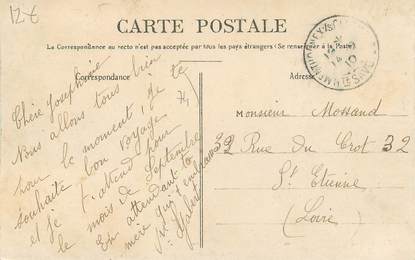 12 €
CARTE POSTALE
La Correspondance au recto n'est pas acceptée par tous les pays étrangers (Se renseigner à la Poste)
Correspondance
Adresse
Chère Joséphine
Nous allons tous bien
pour le moment; je te
souhaite bon voyage
et je t'attend pour
le mois de Septembre
En attendant ta
mère qui t'embrasse
74
Monsieur Mossand
32 Rue du Crot 32
St Etienne
(Loire)